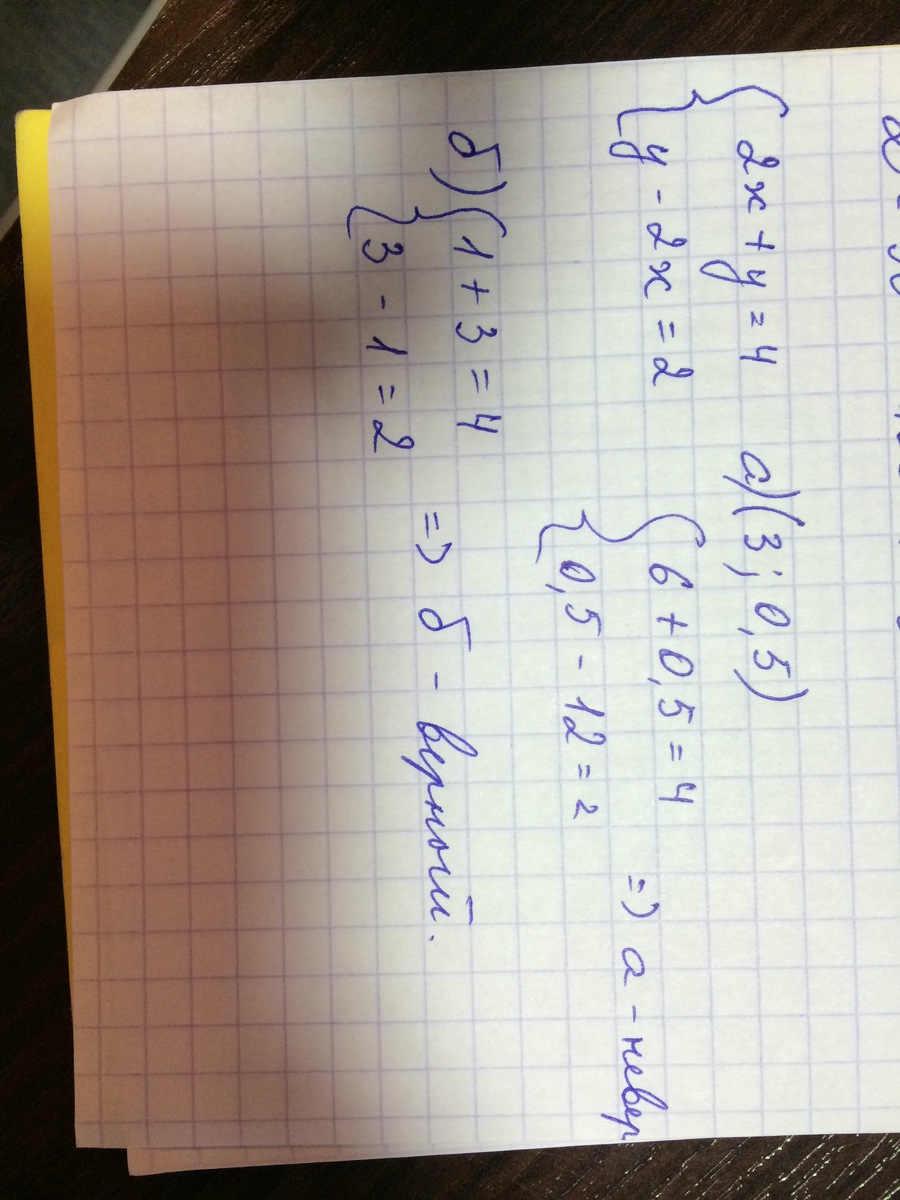 { 2x + y = 4 а) (3; 0,5)
{ y - 2x = 2 { 6 + 0,5 = 4
{ 0,5 - 12 = 2 => а - невер
б) { 1 + 3 = 4
{ 3 - 1 = 2 => б - верный.